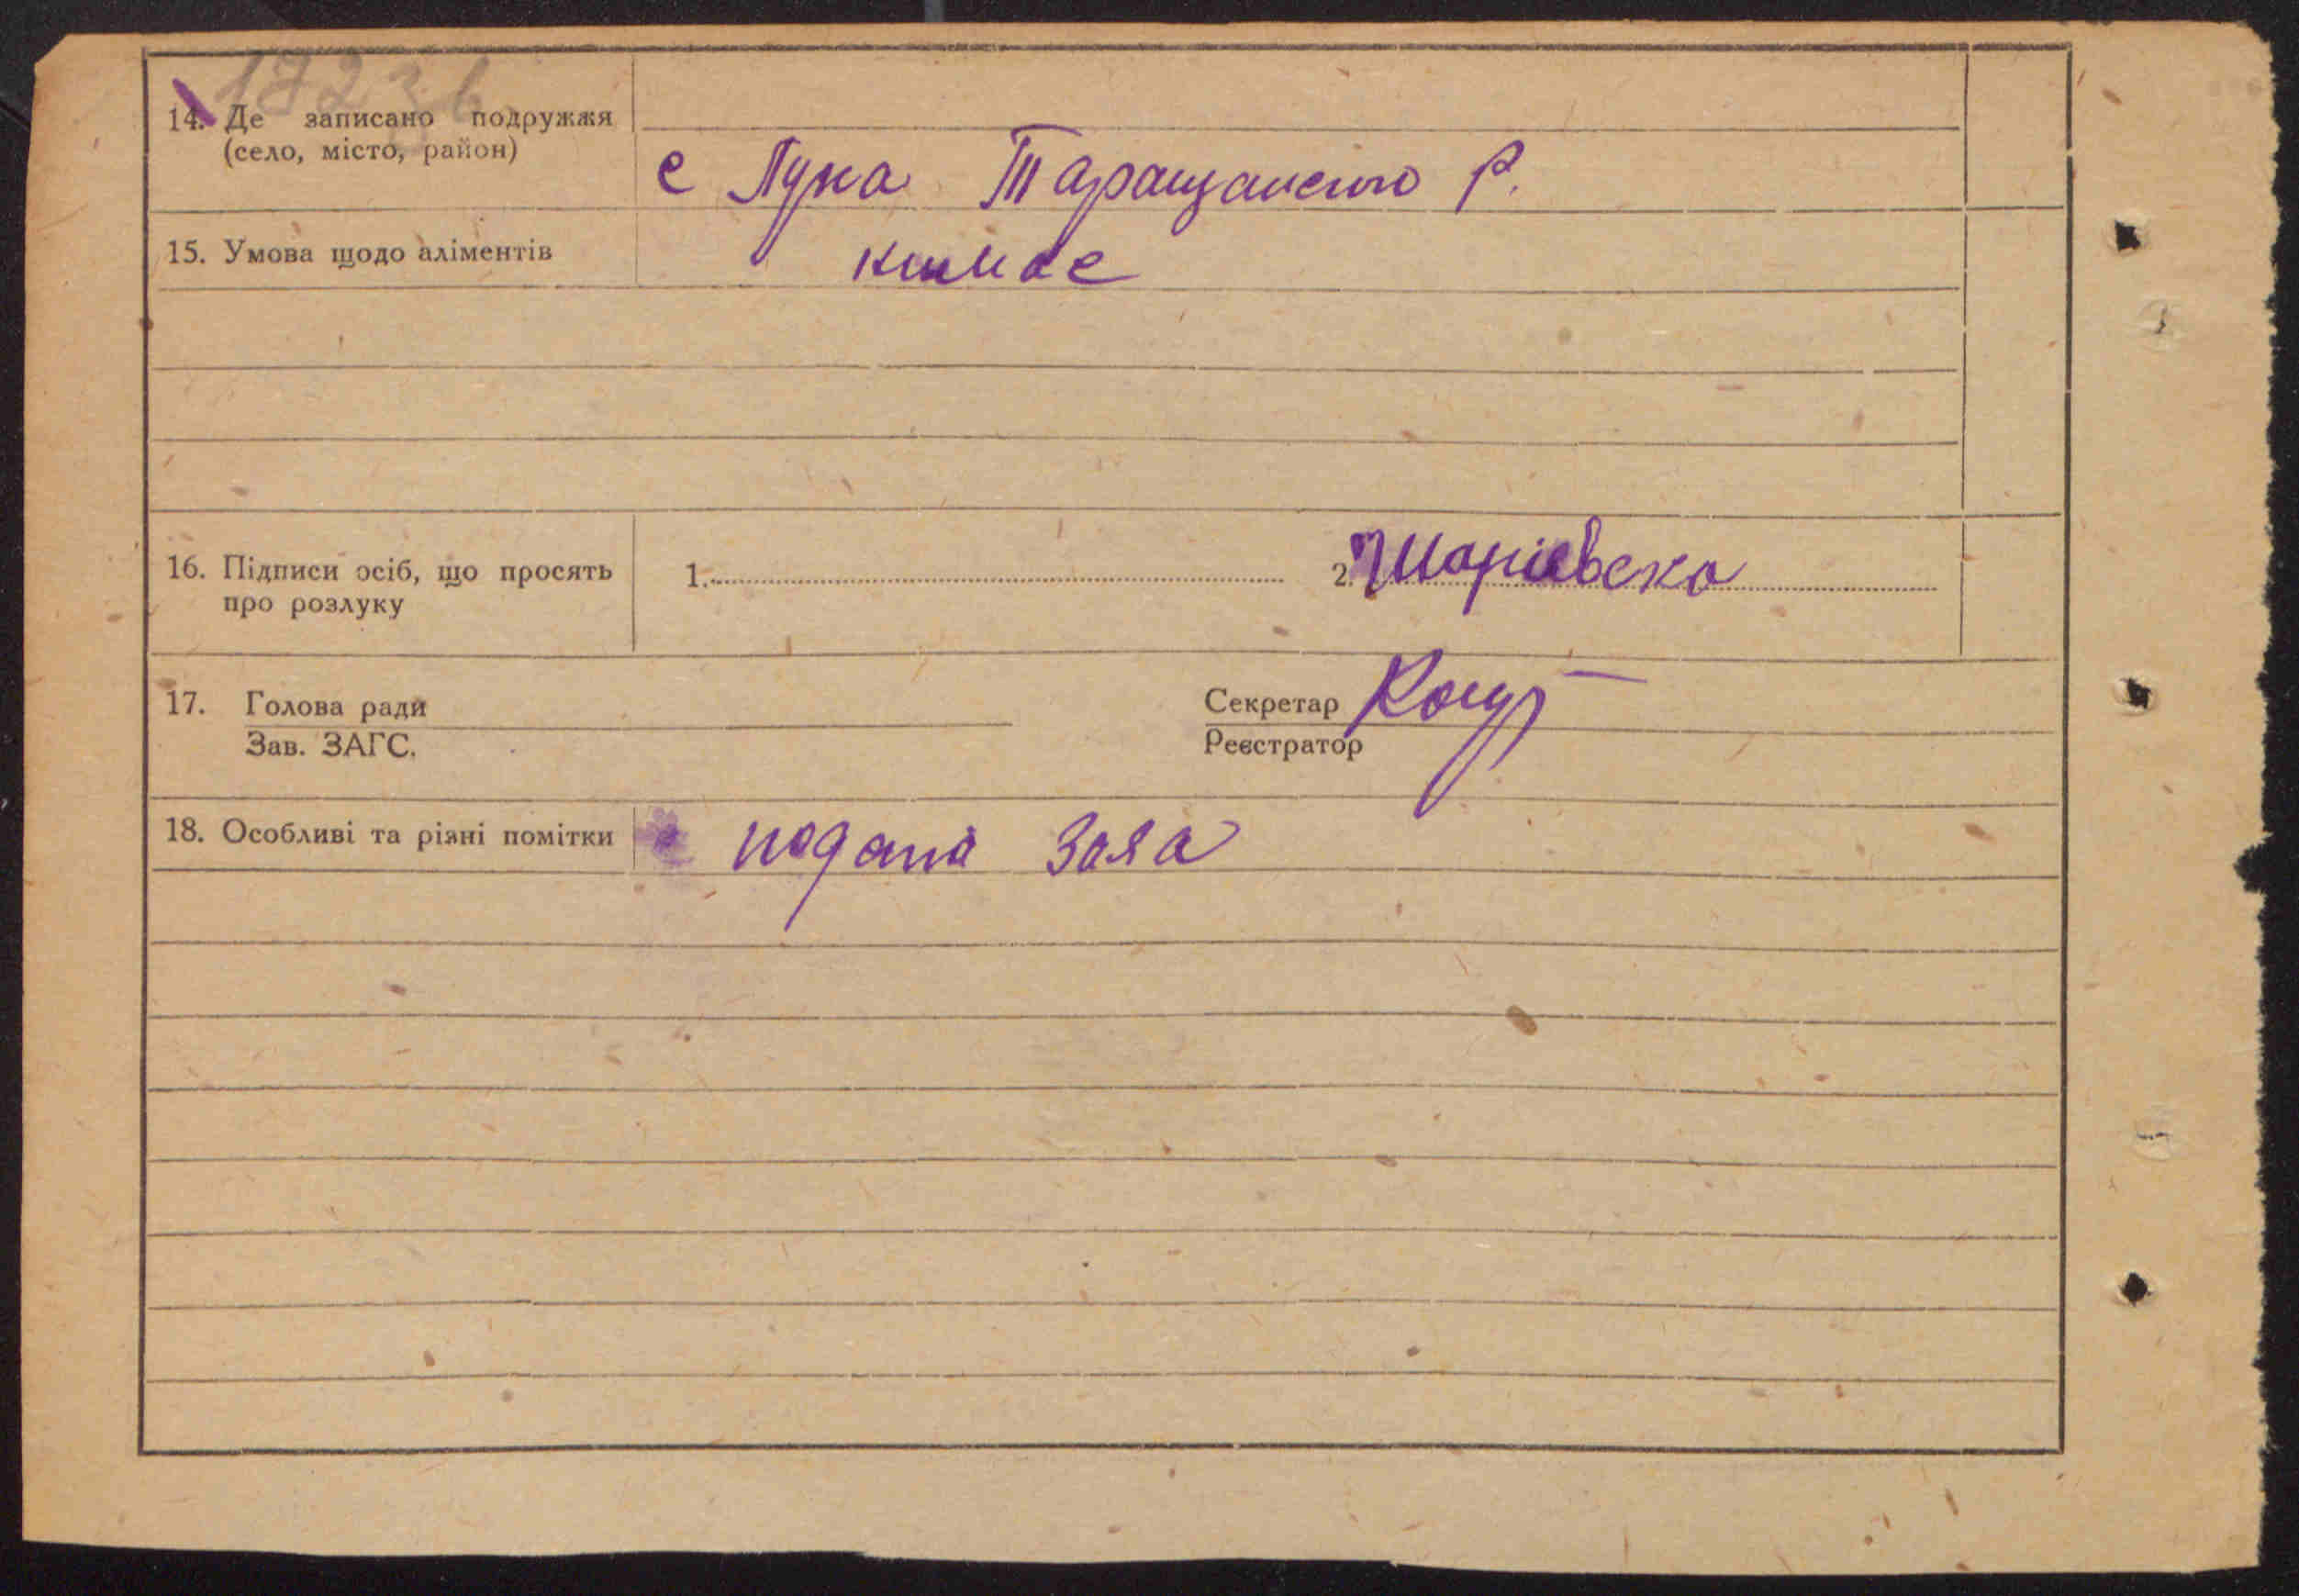 14. Де записано подружжя
(село, місто, район)
с Лука Таращанского р.
15. Умова щодо аліментів
немає
16. Підписи осіб, що просять
про розлуку
1. 2.
17. Голова ради
Зав. ЗАГС.
Секретар
Реєстратор
18. Особливі та різні помітки
подана заява